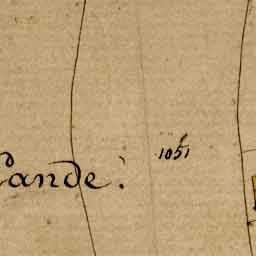 1051
Lande.